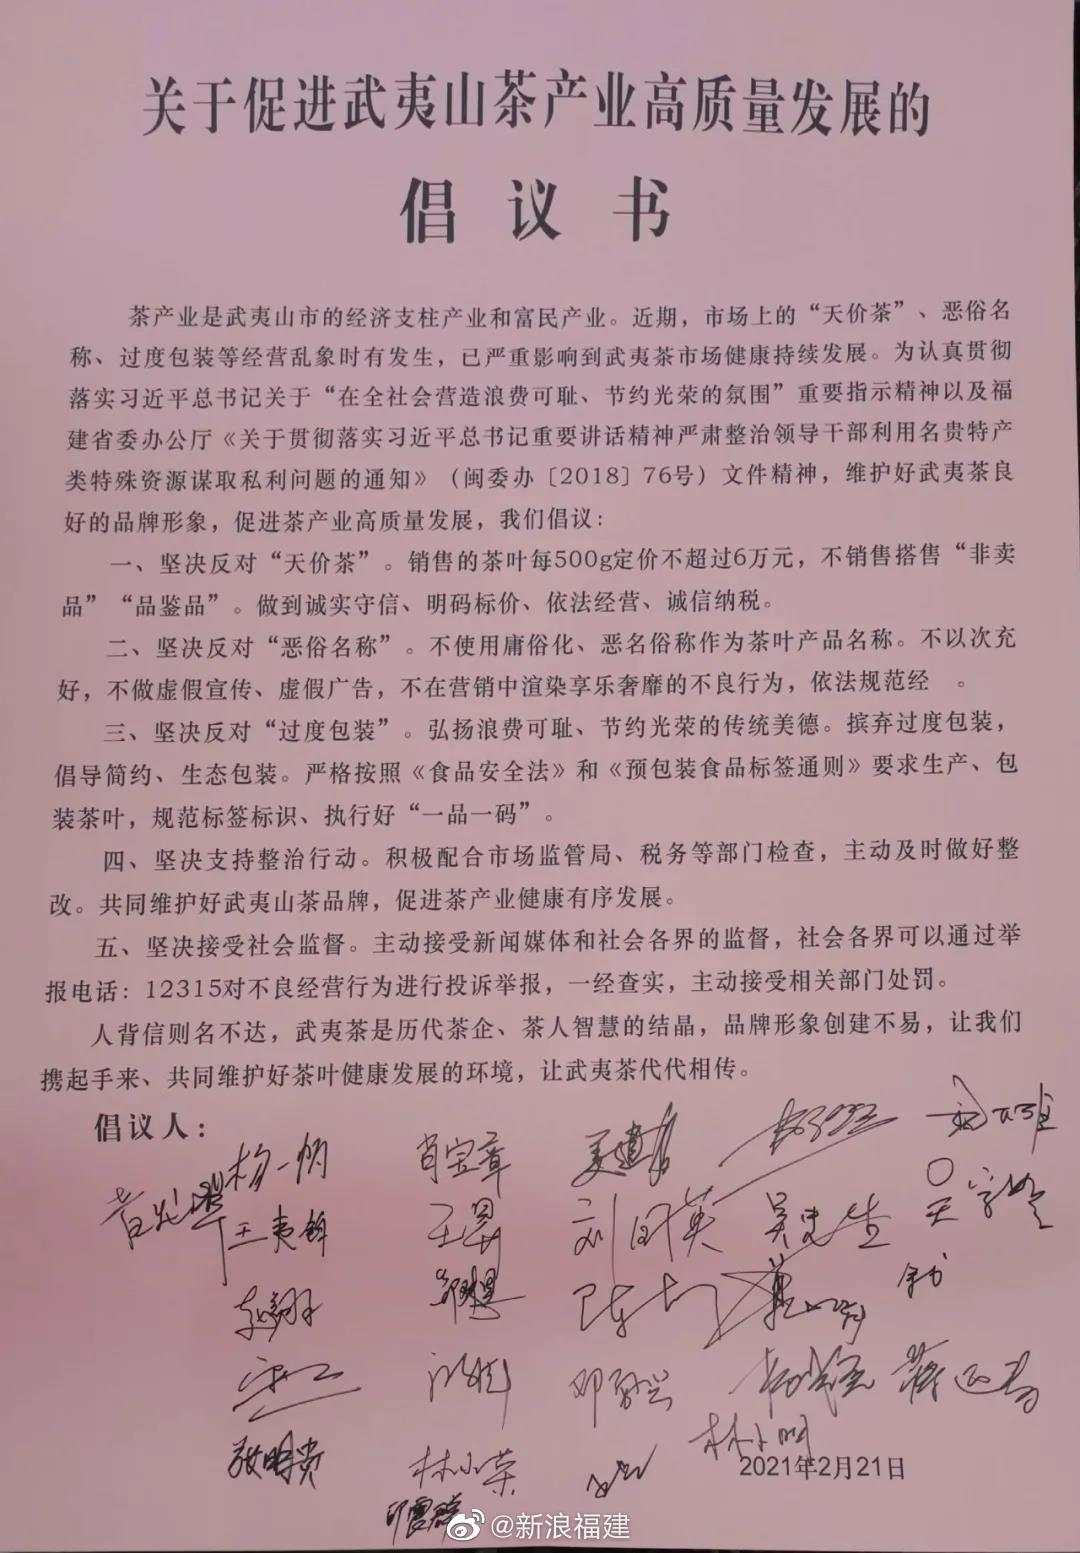 关于促进武夷山茶产业高质量发展的
倡议书
茶产业是武夷山市的经济支柱产业和富民产业。近期，市场上的“天价茶”、恶俗名
称、过度包装等经营乱象时有发生，已严重影响到武夷茶市场健康持续发展。为认真贯彻
落实习近平总书记关于“在全社会营造浪费可耻、节约光荣的氛围”重要指示精神以及福
建省委办公厅《关于贯彻落实习近平总书记重要讲话精神严肃整治领导干部利用名贵特产
类特殊资源谋取私利问题的通知》（闽委办〔2018〕76号）文件精神，维护好武夷茶良
好的品牌形象，促进茶产业高质量发展，我们倡议：
一、坚决反对“天价茶”。销售的茶叶每500g定价不超过6万元，不销售搭售“非卖
品”“品鉴品”。做到诚实守信、明码标价、依法经营、诚信纳税。
二、坚决反对“恶俗名称”。不使用庸俗化、恶名俗称作为茶叶产品名称。不以次充
好，不做虚假宣传、虚假广告，不在营销中渲染享乐奢靡的不良行为，依法规范经 。
三、坚决反对“过度包装”。弘扬浪费可耻、节约光荣的传统美德。摈弃过度包装，
倡导简约、生态包装。严格按照《食品安全法》和《预包装食品标签通则》要求生产、包
装茶叶，规范标签标识、执行好“一品一码”。
四、坚决支持整治行动。积极配合市场监管局、税务等部门检查，主动及时做好整
改。共同维护好武夷山茶品牌，促进茶产业健康有序发展。
五、坚决接受社会监督。主动接受新闻媒体和社会各界的监督，社会各界可以通过举
报电话：12315对不良经营行为进行投诉举报，一经查实，主动接受相关部门处罚。
人背信则名不达，武夷茶是历代茶企、茶人智慧的结晶，品牌形象创建不易，让我们
携起手来、共同维护好茶叶健康发展的环境，让武夷茶代代相传。
倡议人：
肖宝章
王昙
刘国英
林小荣
2021年2月21日
@新浪福建